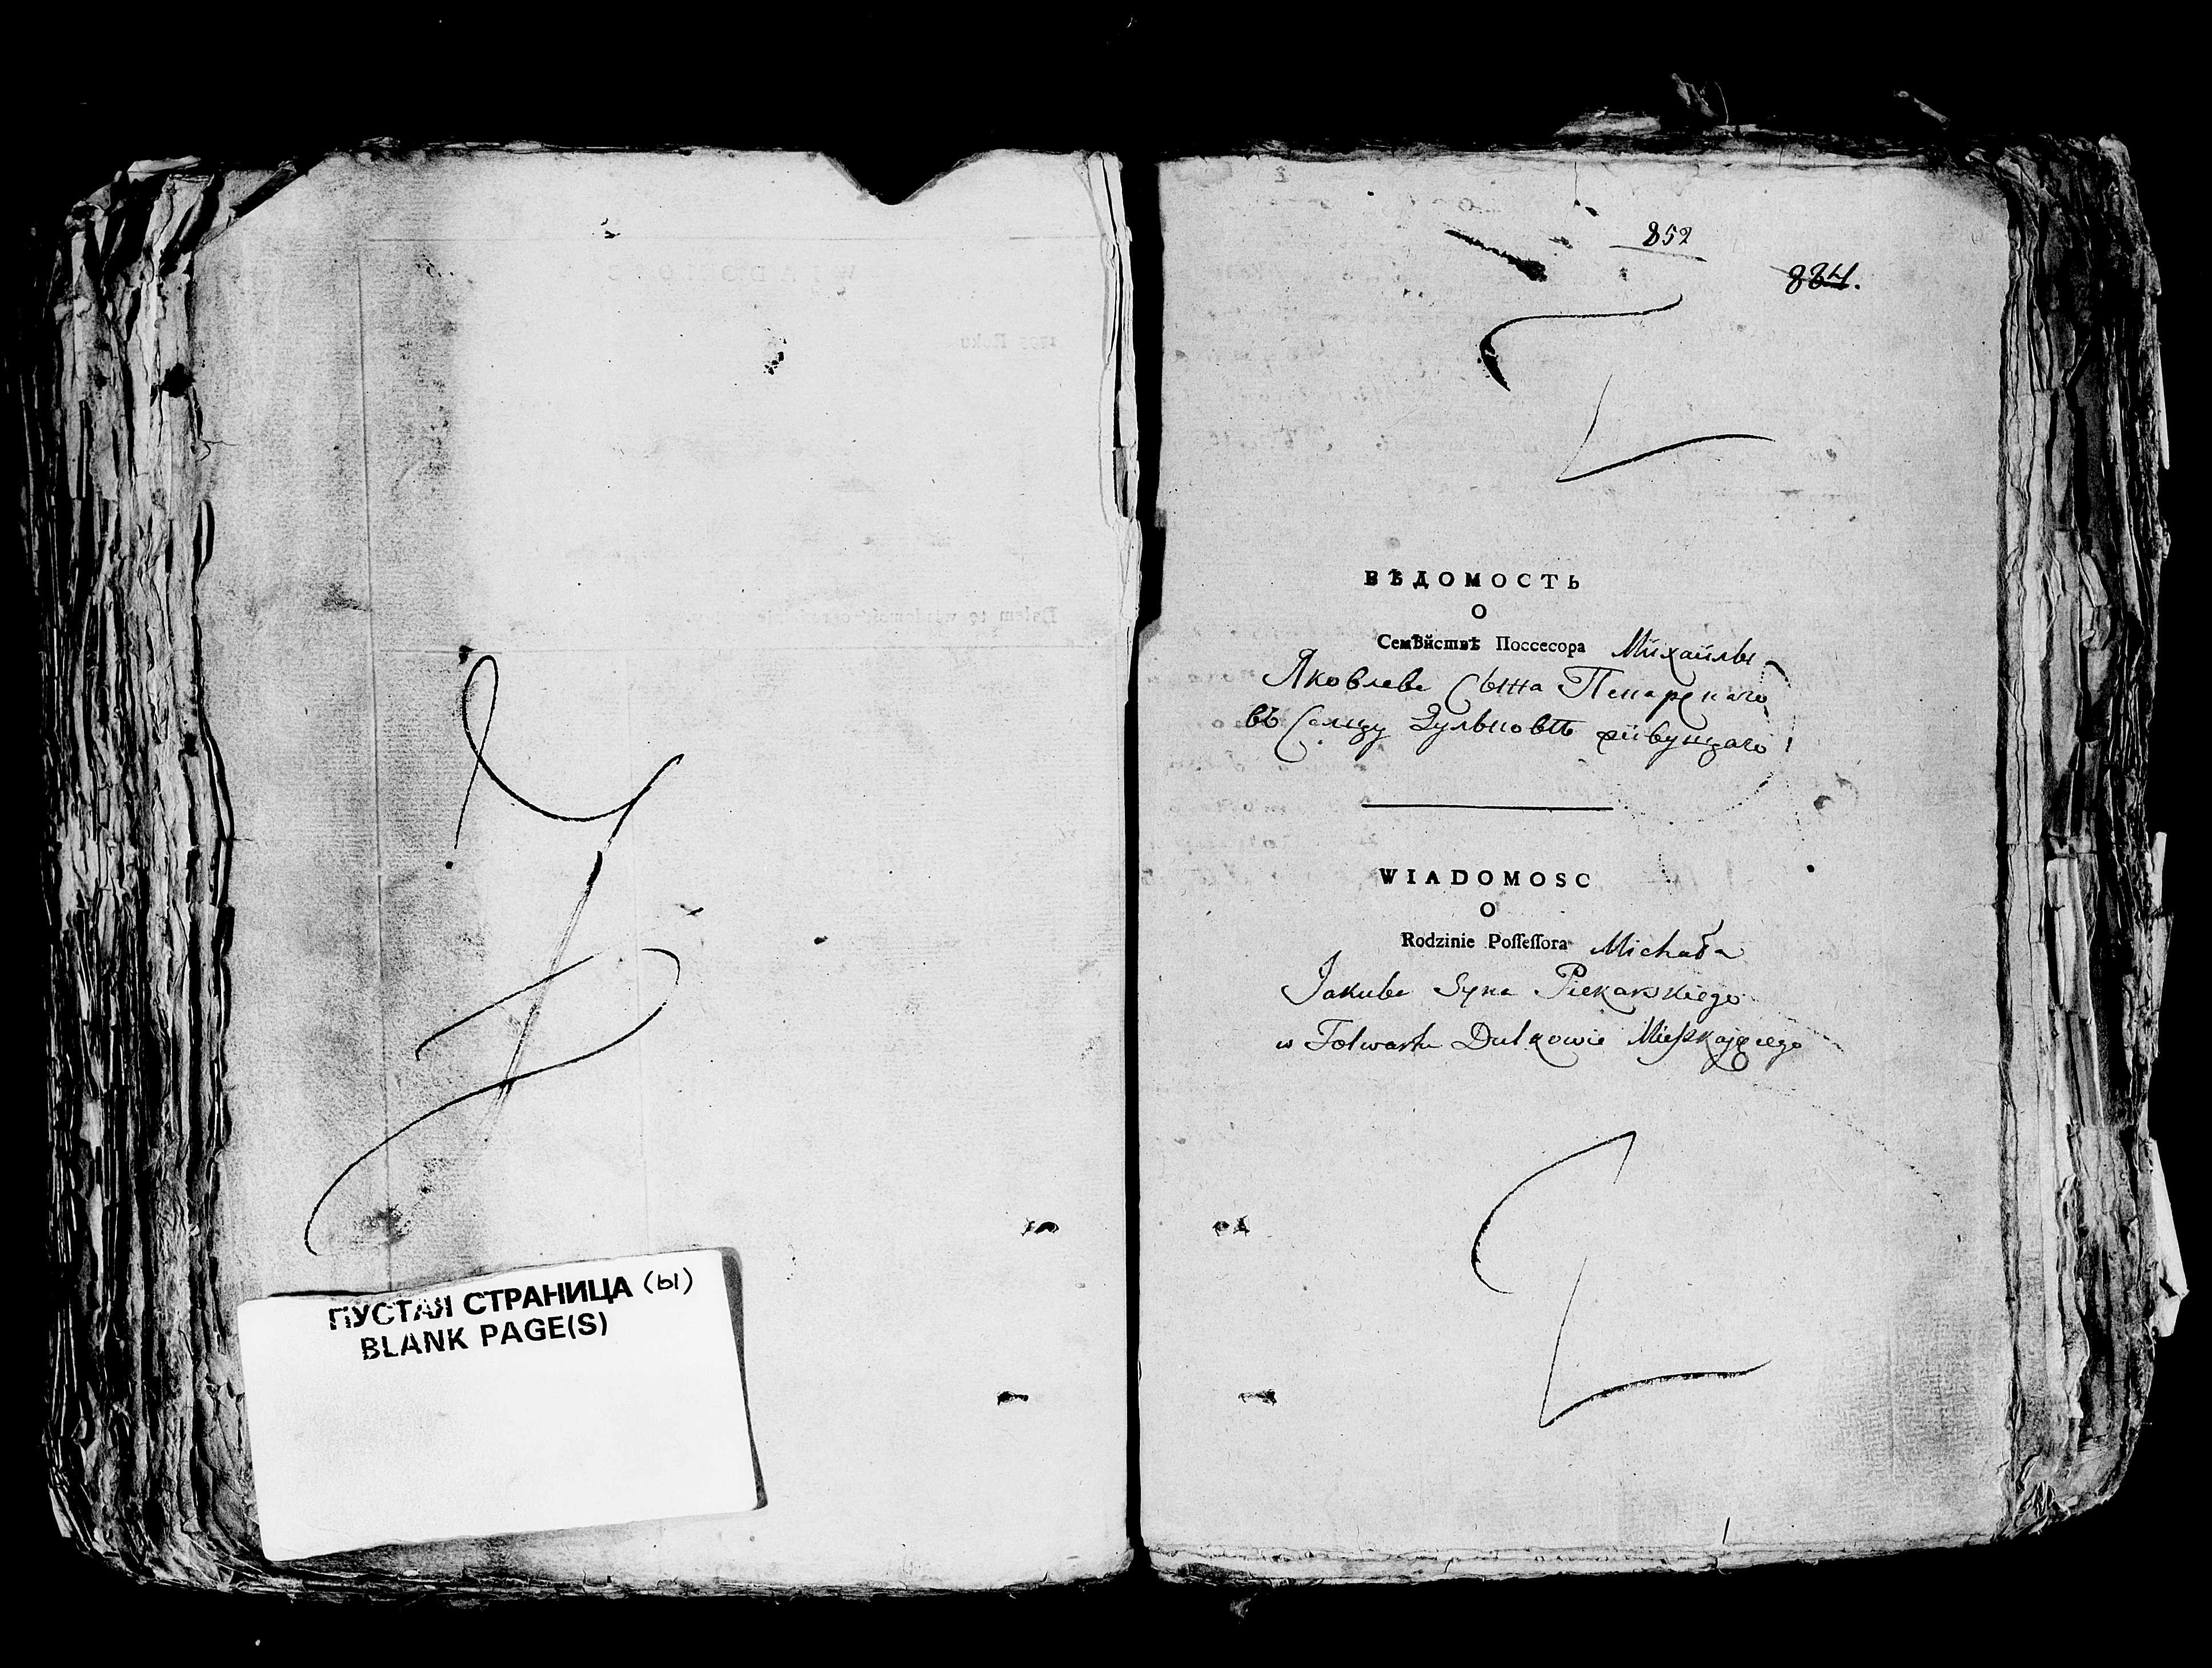 ПУСТАЯ СТРАНИЦА (ы)
BLANK PAGE(S)
852
884.
ВѢДОМОСТЬ
О
Семѣйствѣ Поссесора Михайлы
Яковлева Сына Пекарскаго
въ Селцу Дульковѣ живущаго
WIADOMOSC
O
Rodzinie Poſſeſſora Michała
Jakuba Syna Piekarskiego
w Folwarku Dulkowie Mieſzkającego